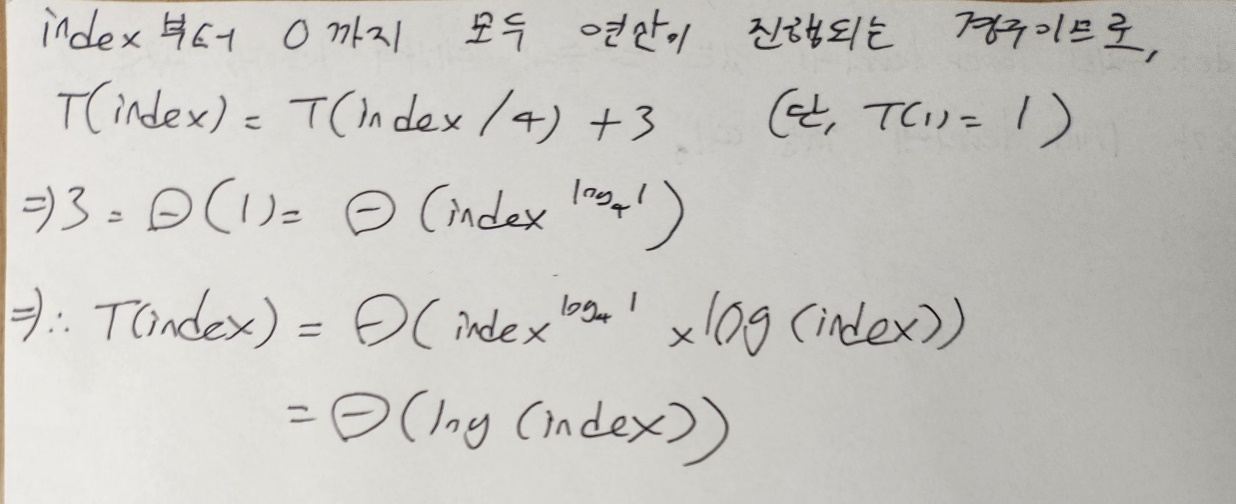 index 부터 0 까지 모두 연산이 진행되는 경우이므로,
T(index) = T(index/4) + 3 (단, T(1) = 1)
⇒ 3 = Θ(1) = Θ(index^log₄1)
⇒ ∴ T(index) = Θ(index^log₄1 × log(index))
= Θ(log(index))